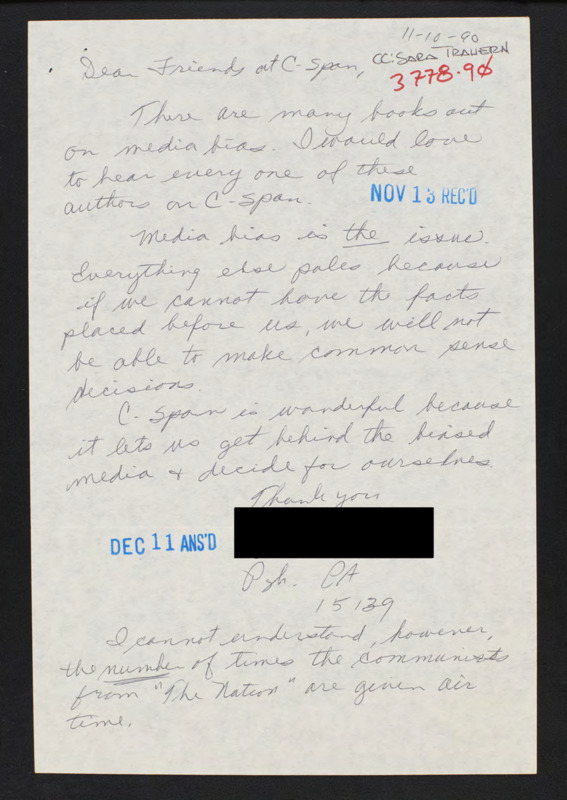 11-10-90
Dear Friends at C-Span,
CC: SARA TRAHERN
3778.90
There are many books out
on media bias. I would love
to hear every one of these
authors on C-Span.
NOV 13 REC'D
Media bias is the issue.
Everything else pales because
if we cannot have the facts
placed before us, we will not
be able to make common sense
decisions.
C-Span is wonderful because
it lets us get behind the biased
media & decide for ourselves.
Thank you
DEC 11 ANS'D
Pgh. PA
15139
I cannot understand, however,
the number of times the communists
from "The Nation" are given air
time.